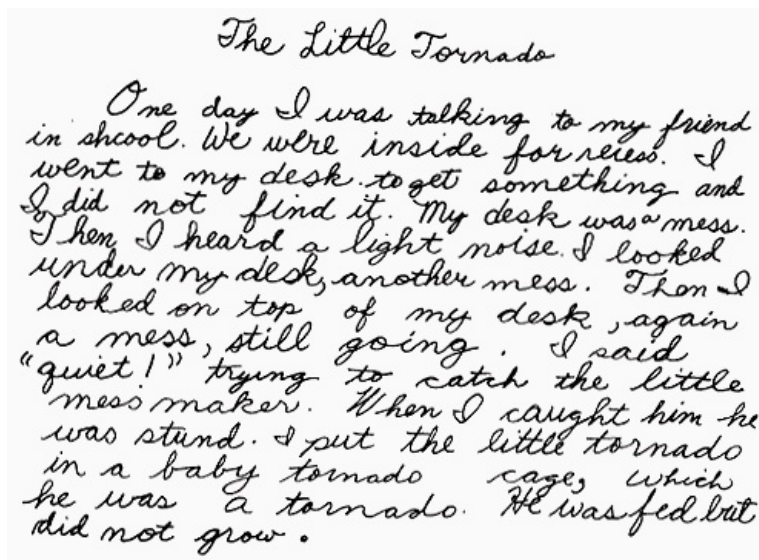 The Little Tornado
One day I was talking to my friend
in shcool. We were inside for recess. I
went to my desk to get something and
I did not find it. My desk was a mess.
Then I heard a light noise. I looked
under my desk, another mess. Then I
looked on top of my desk, again
a mess, still going. I said
"quiet!" trying to catch the little
mess maker. When I caught him he
was stund. I put the little tornado
in a baby tornado cage, which
he was a tornado. He was fed but
did not grow.